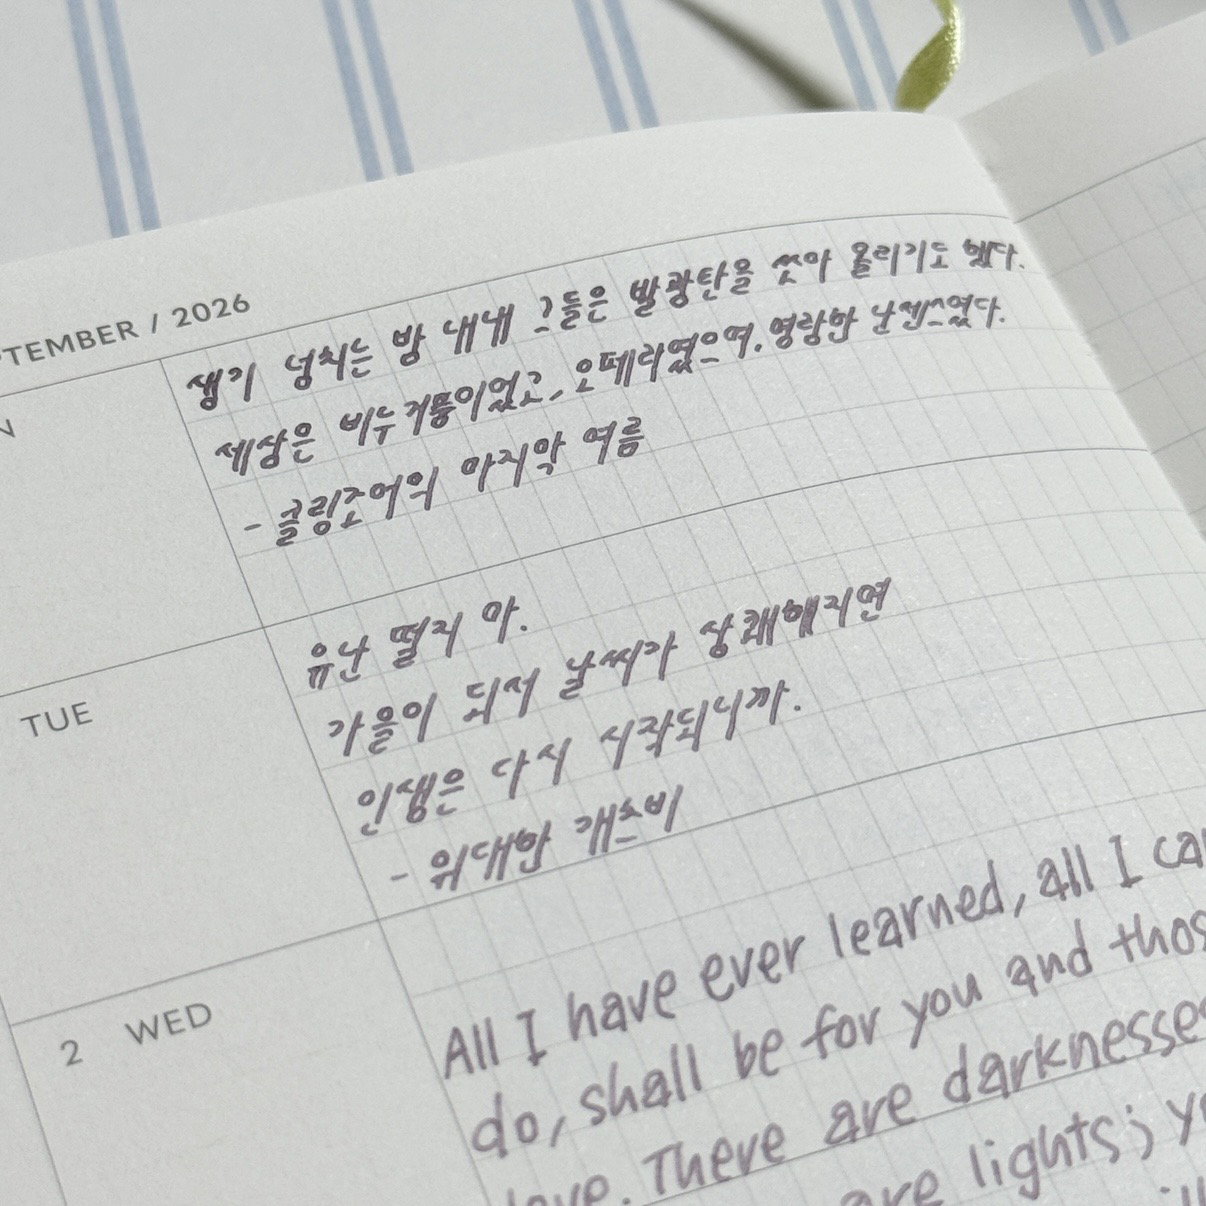 TEMBER / 2026
생기 넘치는 밤 내내 그들은 발광탄을 쏘아 올리기도 했다.
세상은 비누거품이었고, 오페라였으며. 명랑한 난센스였다.
- 클링조어의 마지막 여름
TUE
유난 떨지 마.
가을이 되서 날씨가 상쾌해지면
인생은 다시 시작되니까.
- 위대한 개츠비
2 WED
All I have ever learned, all I ca
do, shall be for you and thos
love. There are darknesse
are lights; y